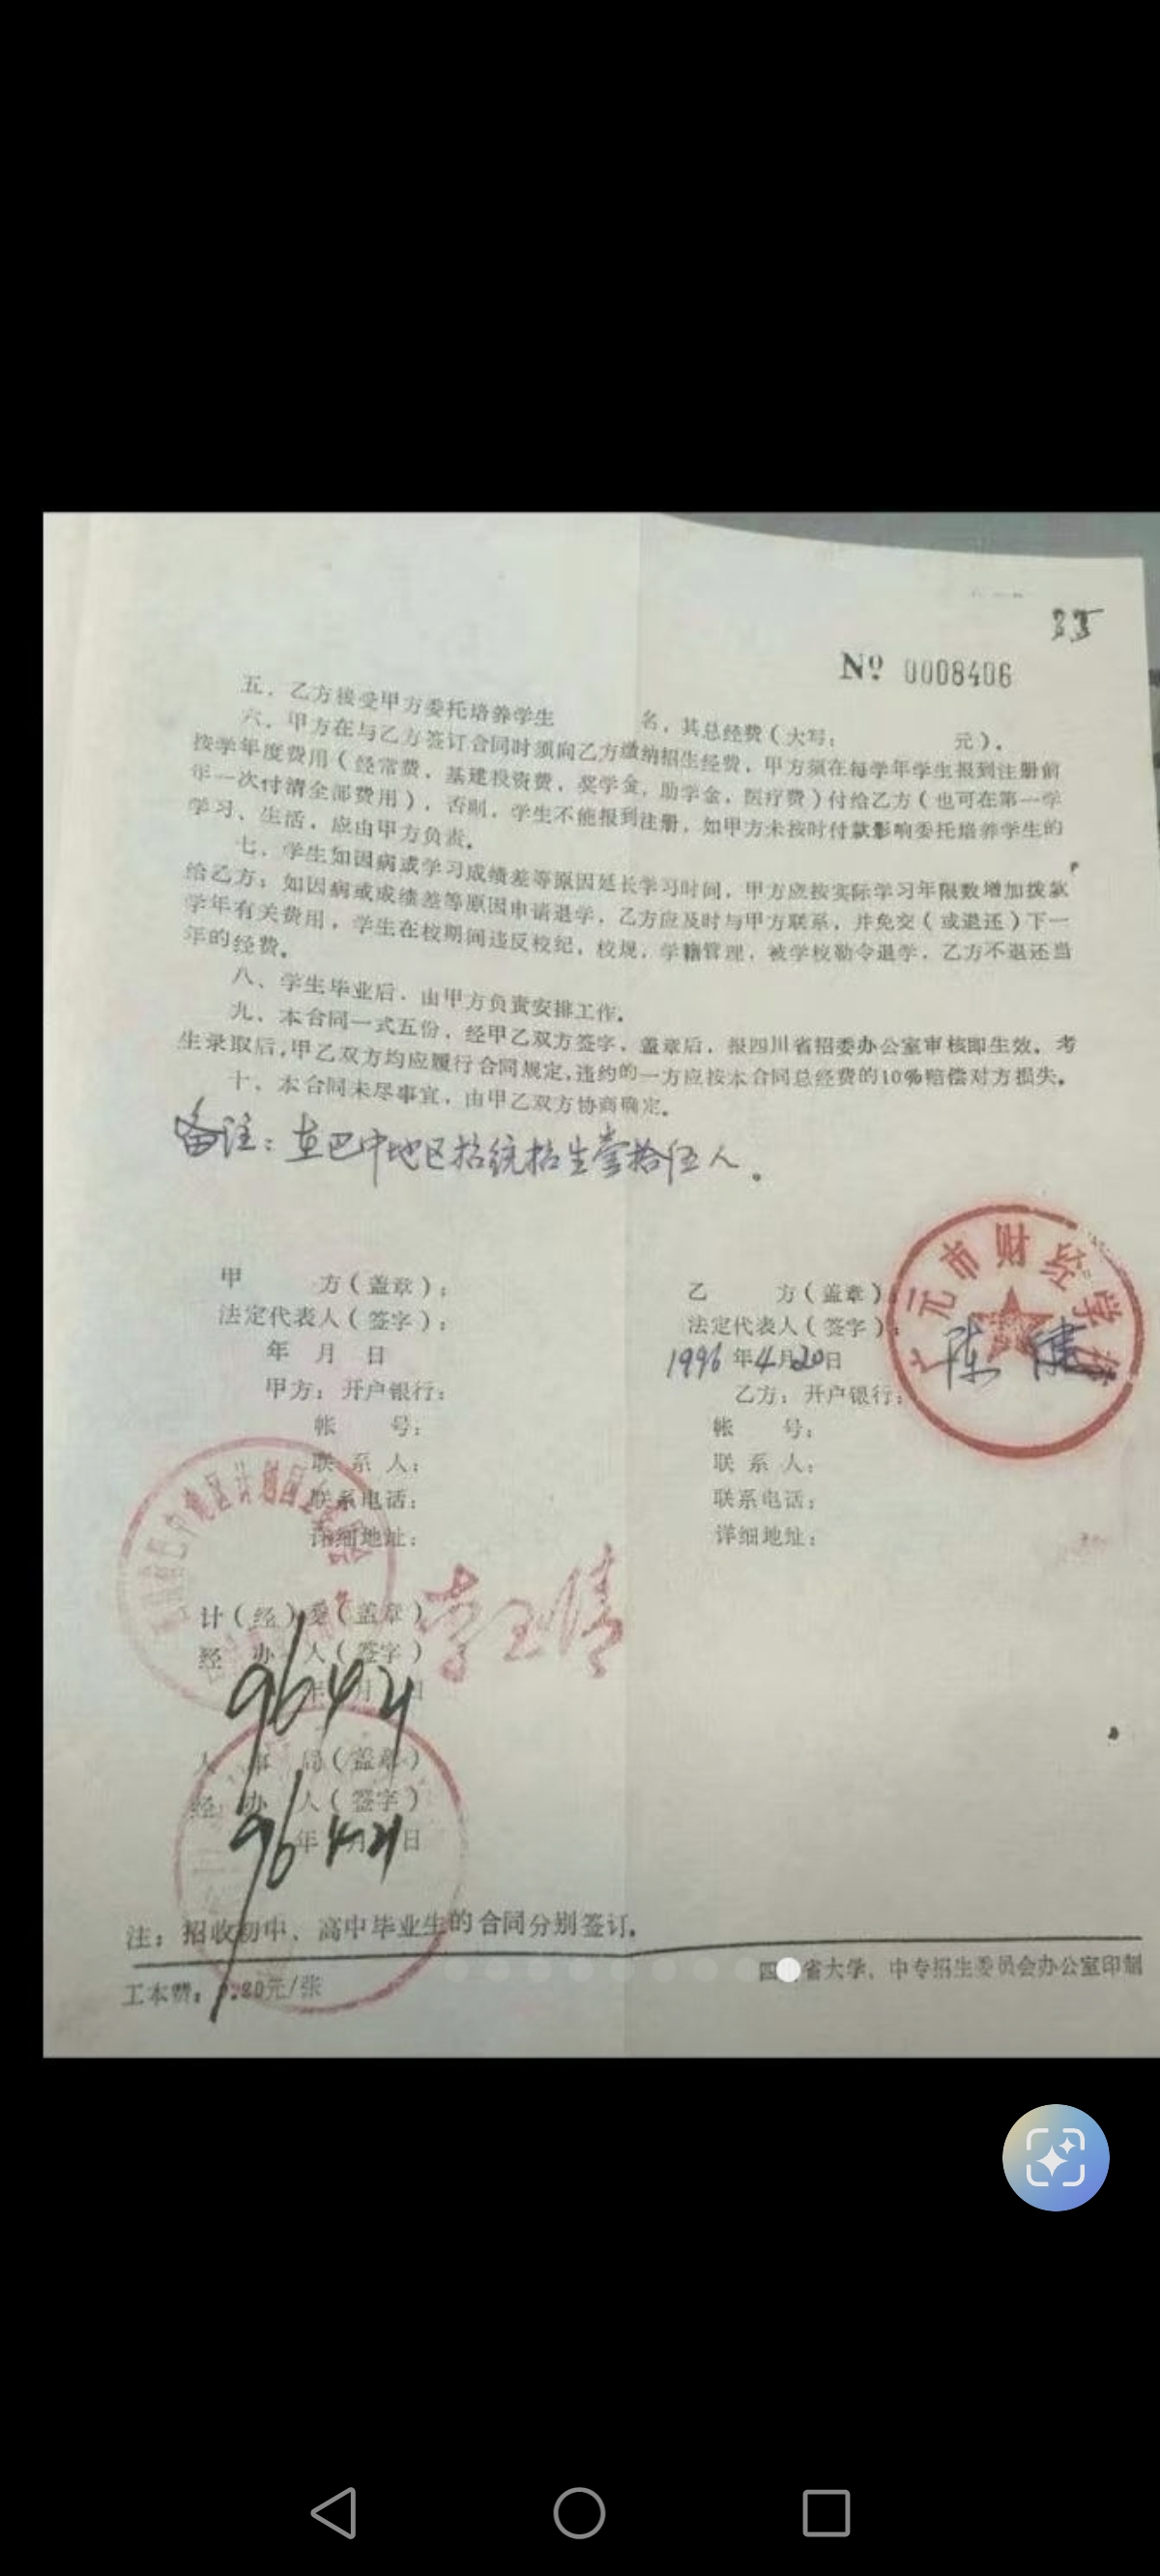 35
№ 0008406
五．乙方接受甲方委托培养学生 名，其总经费（大写： 元）．
六．甲方在与乙方签订合同时须向乙方缴纳招生经费，甲方须在每学年学生报到注册前
按学年度费用（经常费．基建投资费．奖学金．助学金．医疗费）付给乙方（也可在第一学
年一次付清全部费用），否则，学生不能报到注册，如甲方未按时付款影响委托培养学生的
学习、生活，应由甲方负责．
七．学生如因病或学习成绩差等原因延长学习时间，甲方应按实际学习年限数增加拨款
给乙方；如因病或成绩差等原因申请退学，乙方应及时与甲方联系，并免交（或退还）下一
学年有关费用，学生在校期间违反校纪，校规，学籍管理，被学校勒令退学，乙方不退还当
年的经费．
八、学生毕业后，由甲方负责安排工作．
九、本合同一式五份，经甲乙双方签字、盖章后，报四川省招委办公室审核即生效．考
生录取后，甲乙双方均应履行合同规定，违约的一方应按本合同总经费的10%赔偿对方损失．
十、本合同未尽事宜，由甲乙双方协商确定．
备注：在巴中地区招统招生壹拾伍人．
甲 方（盖章）：
法定代表人（签字）：
年 月 日
甲方：开户银行：
帐 号：
联 系 人：
联系电话：
详细地址：
乙 方（盖章）：
元市财经学校
法定代表人（签字）：
陈健
1996年4月20日
乙方：开户银行：
帐 号：
联 系 人：
联系电话：
详细地址：
计（经）委（盖章）
经 办 人（签字）
年 月 日
96 4 21
人 事 局（盖章）
经 办 人（签字）
年 月 日
96 4 21
注：招收初中、高中毕业生的合同分别签订．
工本费：0.20元/张
四川省大学、中专招生委员会办公室印制